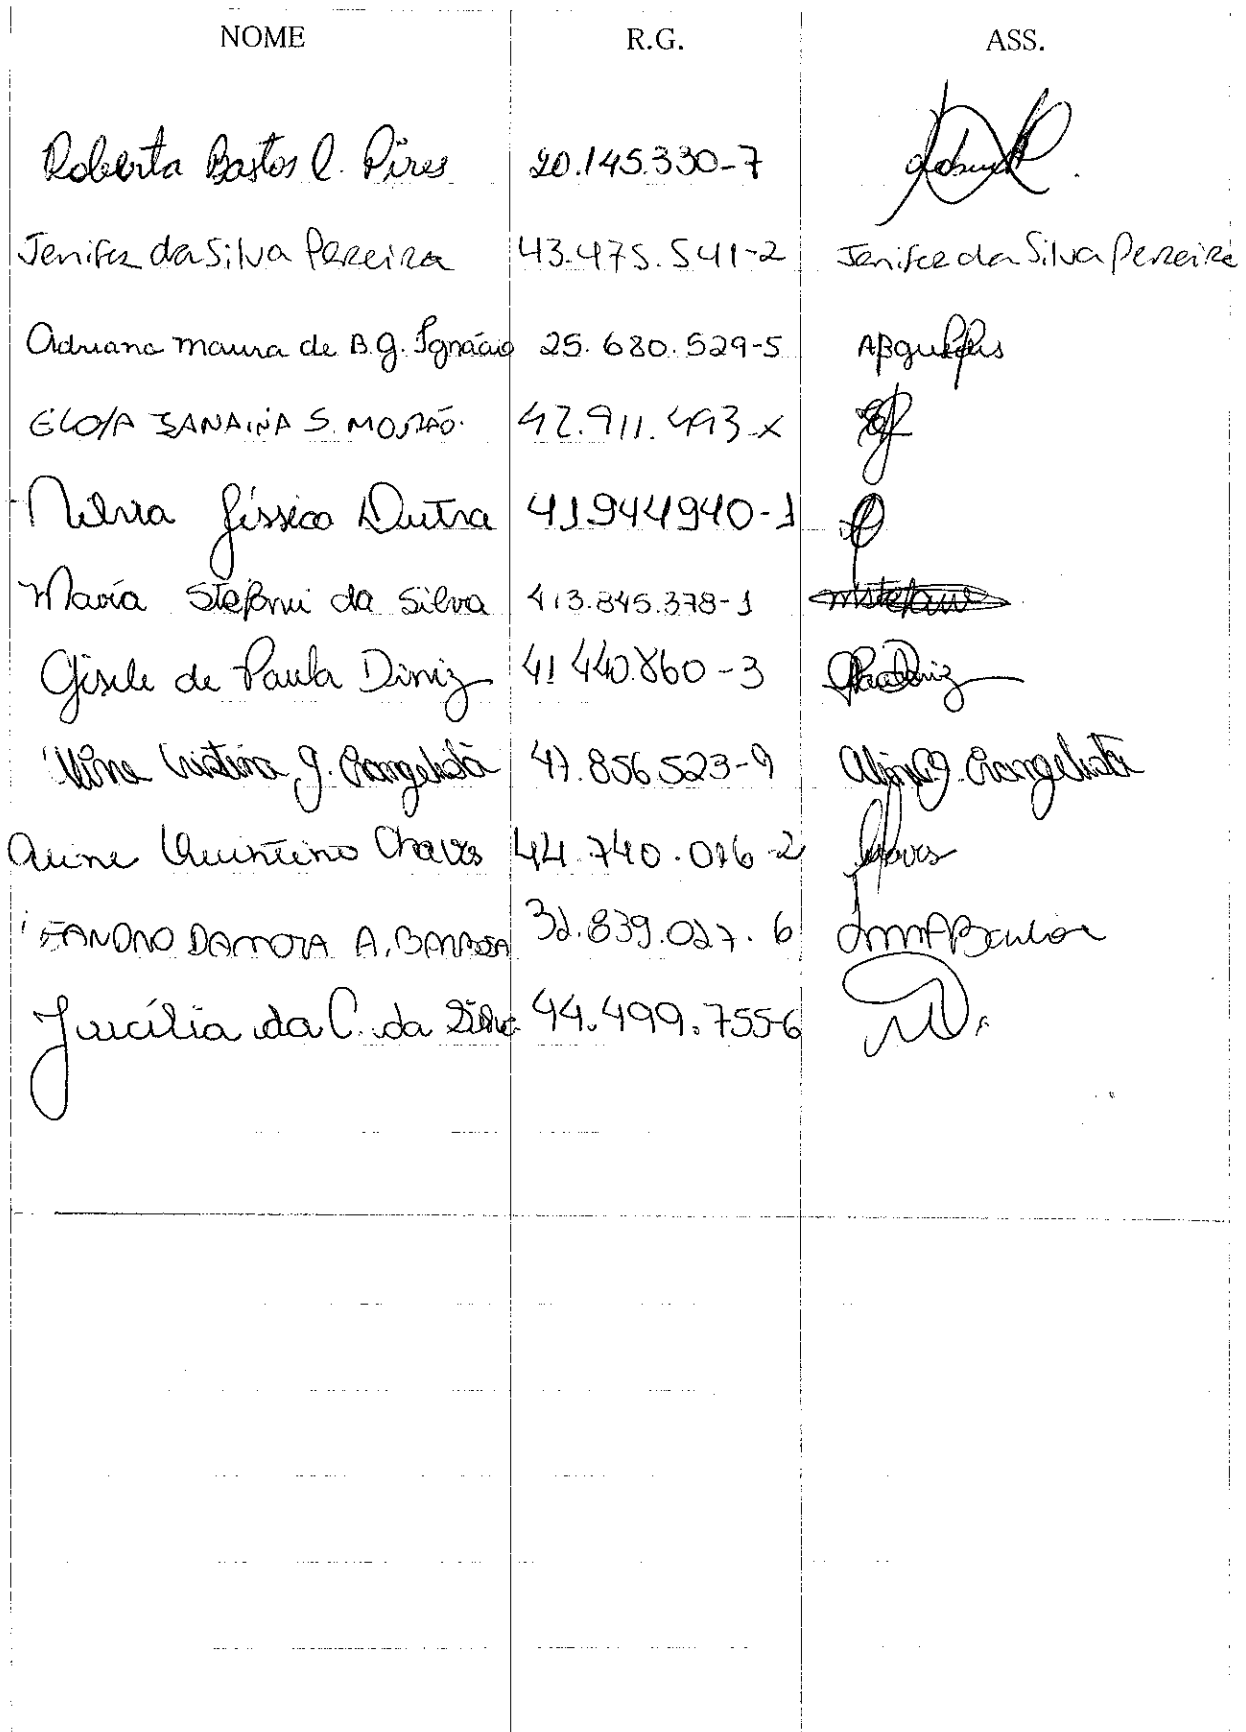 NOME R.G. ASS.
Roberta Bastos C. Pires 20.145.330-7
Jenifer da Silva Pereira 43.475.541-2 Jenifer da Silva Pereira
Adriana Maura de B.G. Ignácio 25.680.529-5
JANAINA S. 42.911.493-X
Jéssica Dutra 41944940-1
Maria Stefani da Silva 413.845.378-1
Gisele de Paula Diniz 41 440.860-3
Aline Cristina g. Evangelista 47.856.523-9 Aline g. Evangelista
Aline Quinteino Chaves 44.740.016-2 Chaves
DAMOTA A. BARBOSA 32.839.027.6
Jucília da C. da Silva 44.499.755-6